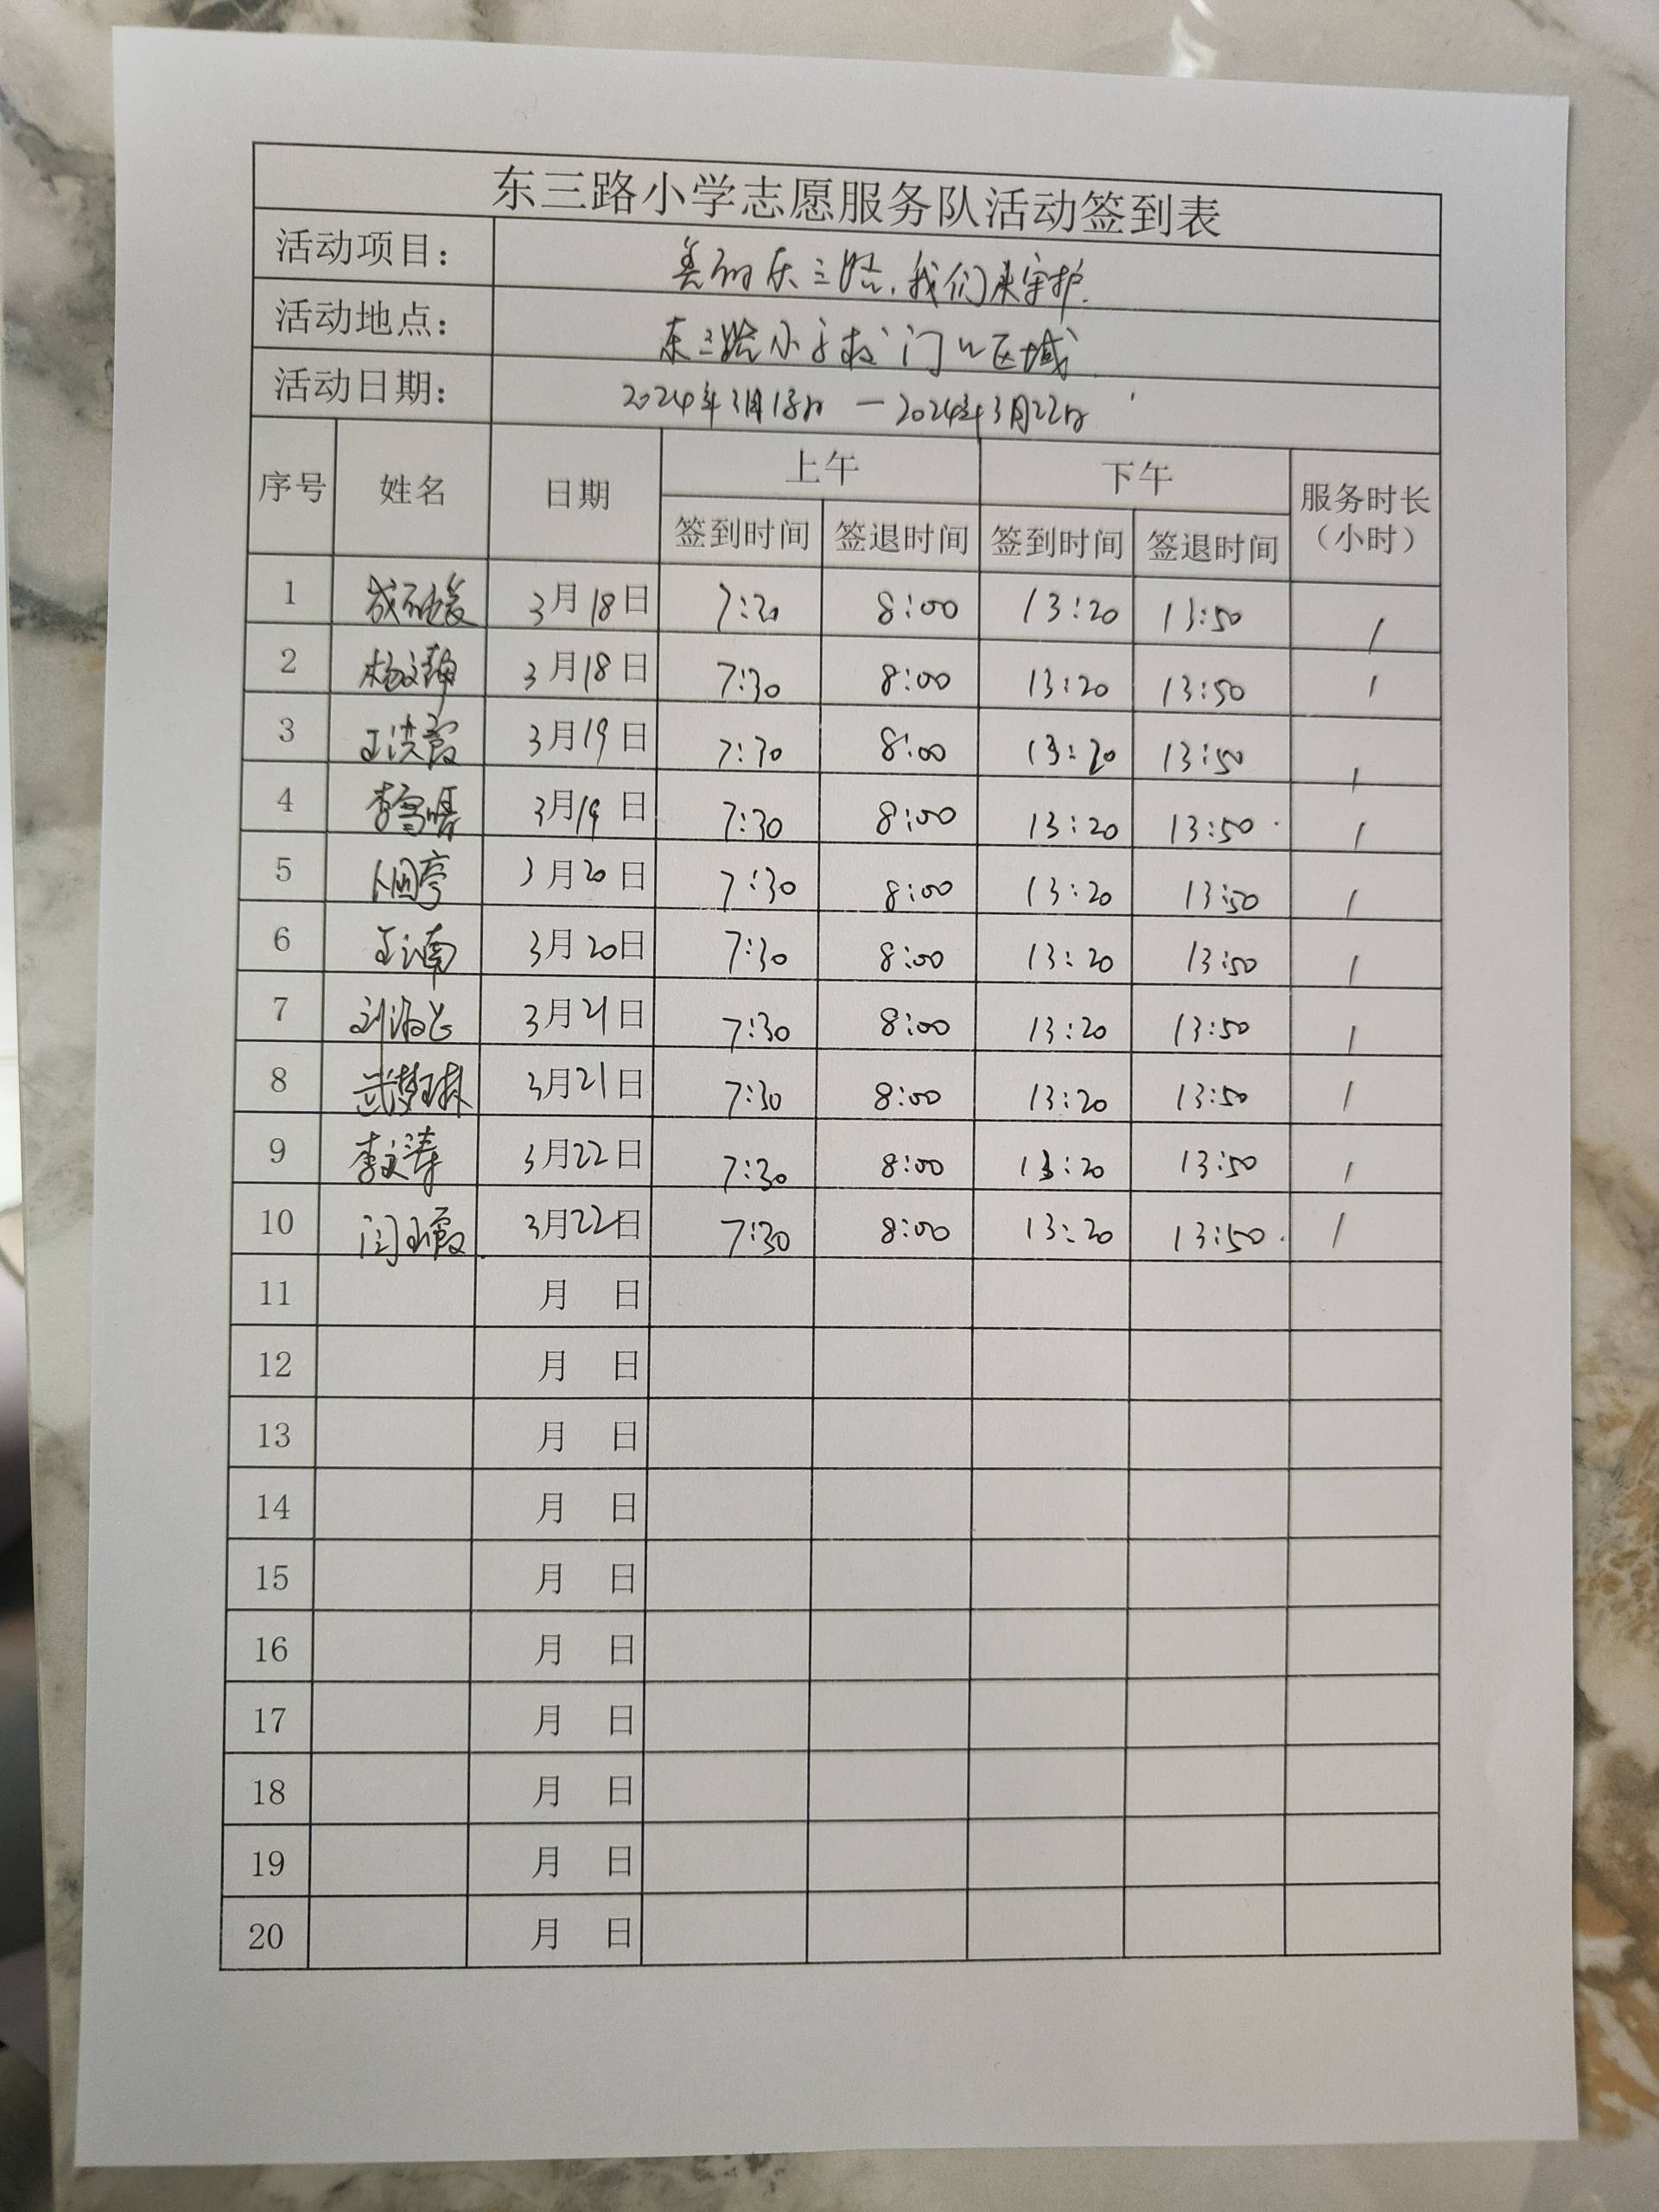 东三路小学志愿服务队活动签到表
活动项目： 美丽东三路，我们来守护.
活动地点： 东三路小学校门口区域
活动日期： 2024年3月18日 — 2024年3月22日
序号 姓名 日期 上午 下午 服务时长（小时）
签到时间 签退时间 签到时间 签退时间
1 3月18日 7:30 8:00 13:20 13:50 1
2 杨文静 3月18日 7:30 8:00 13:20 13:50 1
3 王洪霞 3月19日 7:30 8:00 13:20 13:50 1
4 李雪晴 3月19日 7:30 8:00 13:20 13:50 1
5 3月20日 7:30 8:00 13:20 13:50 1
6 3月20日 7:30 8:00 13:20 13:50 1
7 3月21日 7:30 8:00 13:20 13:50 1
8 武梦琳 3月21日 7:30 8:00 13:20 13:50 1
9 李文涛 3月22日 7:30 8:00 13:20 13:50 1
10 闫玉霞 3月22日 7:30 8:00 13:20 13:50 1
11 月 日
12 月 日
13 月 日
14 月 日
15 月 日
16 月 日
17 月 日
18 月 日
19 月 日
20 月 日